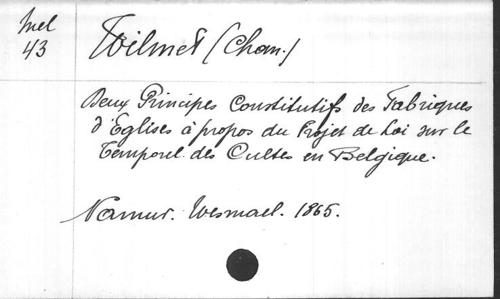 Mel
43
Wilmet (Chan.)
Deux Principes Constitutifs des Fabriques
d'Eglises à propos du Projet de Loi sur le
Temporel des Cultes en Belgique.
Namur. Wesmael. 1865.